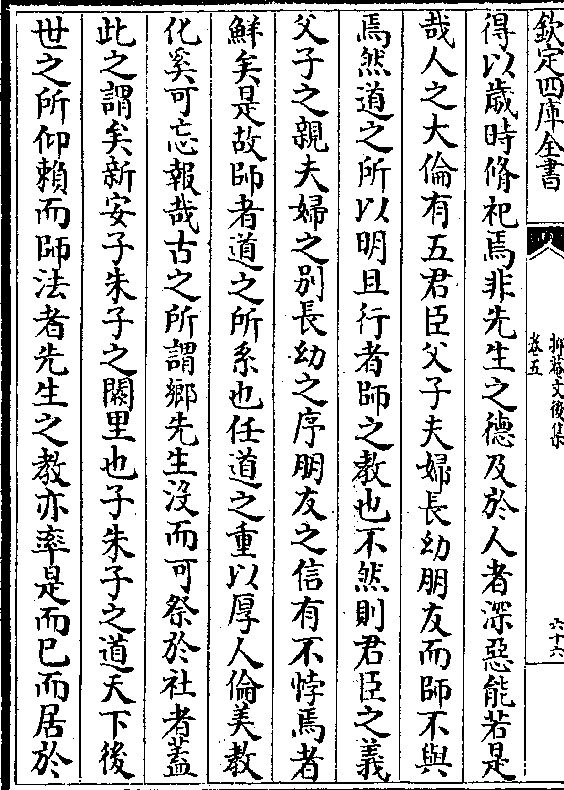 欽定四庫全書
抑菴文後集
卷五
六十六
得以歲時脩祀焉非先生之德及於人者深惡能若是
哉人之大倫有五君臣父子夫婦長幼朋友而師不與
焉然道之所以明且行者師之教也不然則君臣之義
父子之親夫婦之别長幼之序朋友之信有不悖焉者
鮮矣是故師者道之所系也任道之重以厚人倫美教
化奚可忘報哉古之所謂鄉先生沒而可祭於社者蓋
此之謂矣新安子朱子之闕里也子朱子之道天下後
世之所仰賴而師法者先生之教亦率是而已而居於